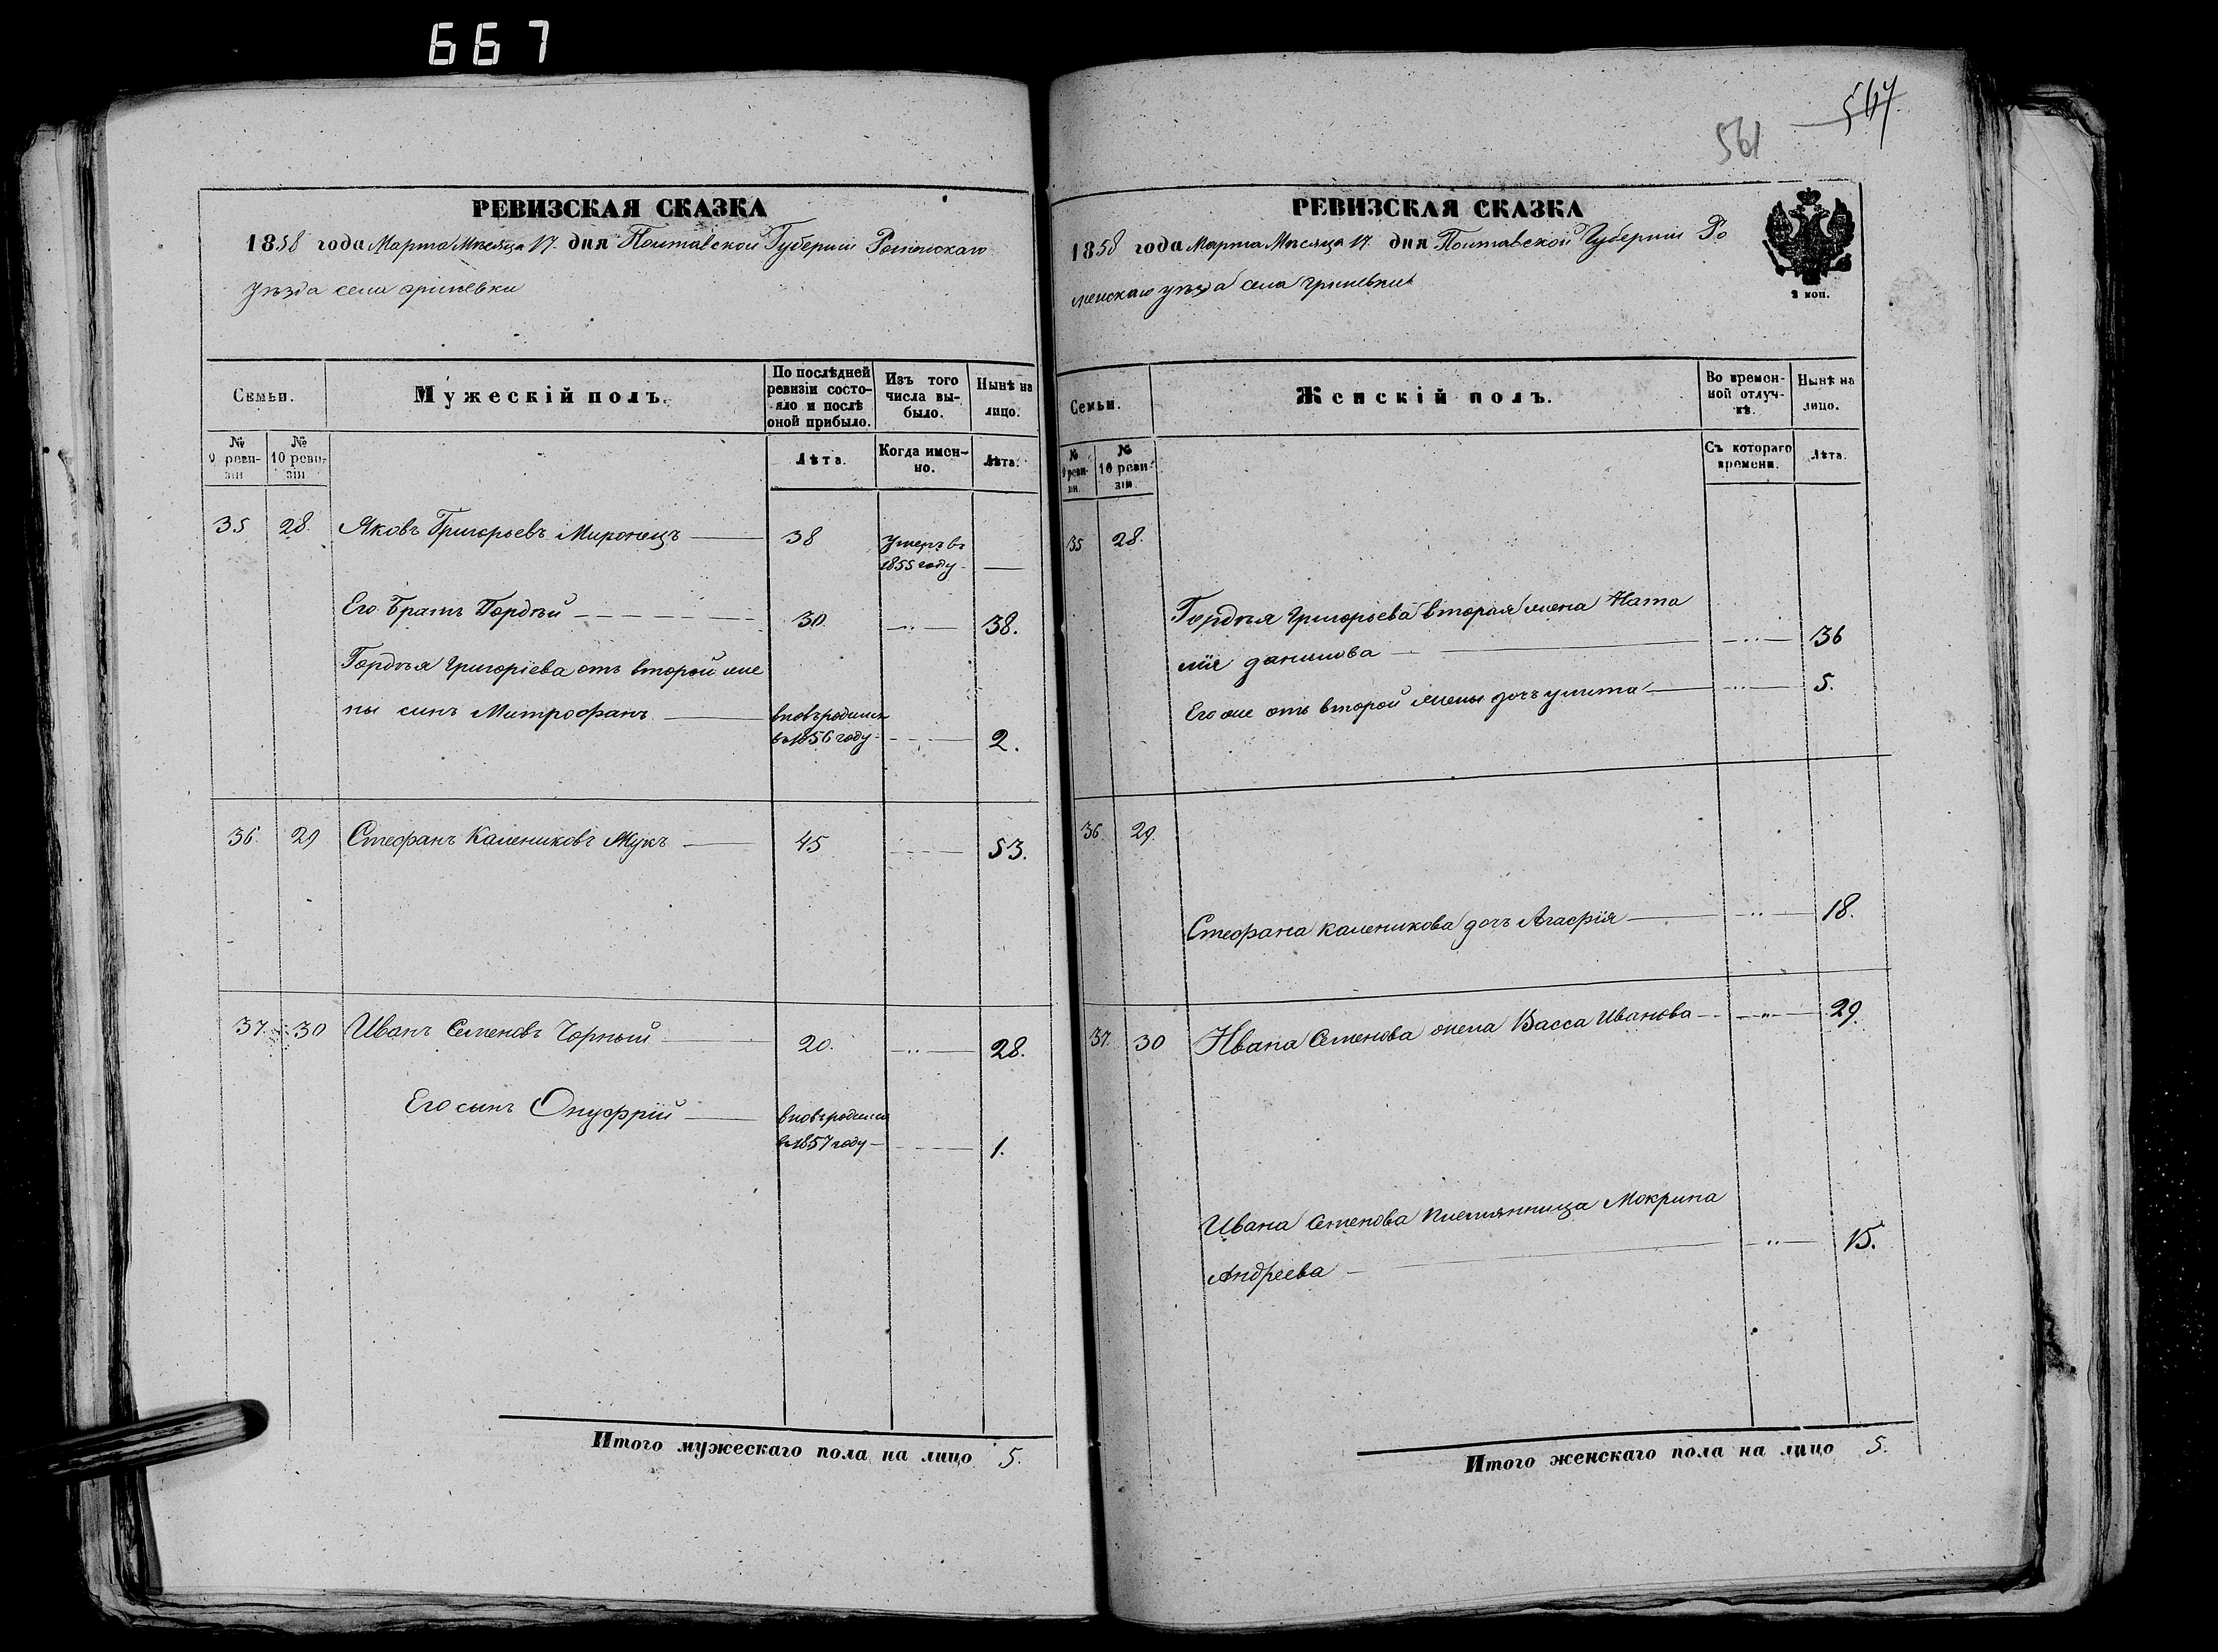 667
РЕВИЗСКАЯ СКАЗКА
1858 года Марта Мѣсяца 17 дня Полтавской Губерніи Роменскаго
уѣзда села гриневки
Семьи.
Мужескій полъ.
По послѣдней
ревизіи состо-
яло и послѣ
оной прибыло.
Изъ того
числа вы-
было.
Нынѣ на
лицо.
№
9 реви-
зіи
№
10 реви-
зіи
Лѣта.
Когда имен-
но.
Лѣта.
35 28. Яковъ Григорьевъ Миронецъ 38 Умеръ въ
1855 году
Его Братъ Гордѣй 30. 38.
Гордѣя Григоріева отъ второй же
ны синъ Митрофанъ вновьродился
въ 1856 году 2.
36. 29 Стефанъ Калениковъ Жукъ 45 53.
37. 30 Иванъ Семеновъ Чорный 20. 28.
Его сынъ Онуфрій вновьродился
въ 1857 году 1.
Итого мужескаго пола на лицо 5.
561
РЕВИЗСКАЯ СКАЗКА
1858 года Марта Мѣсяца 17 дня Полтавской Губерніи Ро
менскаго уѣзда села гриневки
2 коп.
Семьи.
Женскій полъ.
Во времен-
ной отлуч-
кѣ.
Нынѣ на
лицо.
№
9 реви-
зіи
№
10 реви-
зіи
Съ котораго
времени.
Лѣта.
35 28.
Гордѣя Григорьева вторая жена Ната
лія данилова 36
Его же отъ второй жены дочь улита 5.
36. 29.
Стефана каленикова дочь Агафія 18.
37. 30 Ивана Семенова жена Васса Иванова 29.
Ивана Семенова племянница Мокрина
Андреева 15.
Итого женскаго пола на лицо 5.